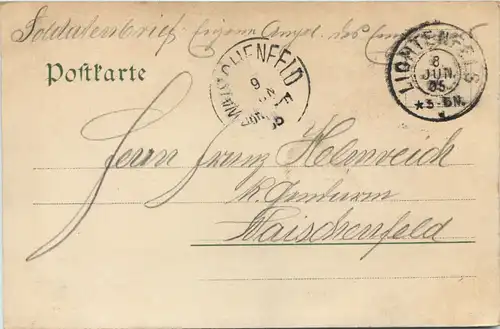 Soldatenbrief. Eigene Angel. des Empfängers
Postkarte
WAISCHENFELD
9
LICHTENFELS
8
JUN.
05.
*3-4N.
Herrn Franz Helmreich
Waischenfeld